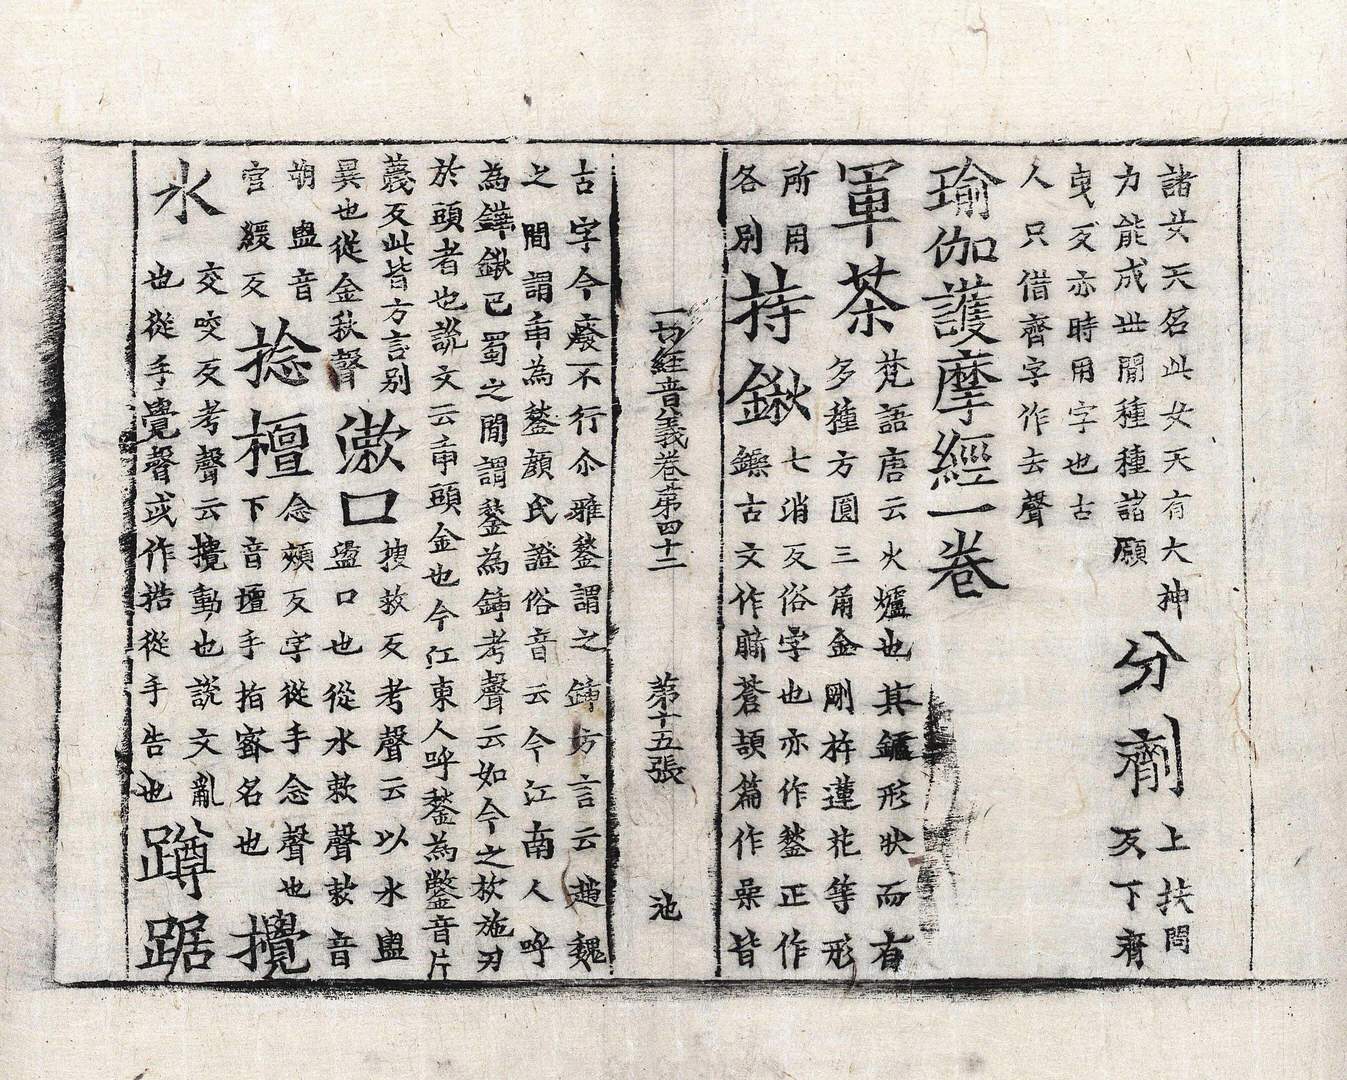 諸女天名此女天有大神
力能成世間種種諸願
分劑
上扶問
反下齊
曳反亦時用字也古
人只借齊字作去聲
瑜伽護摩經一卷
軍荼
梵語唐云火爐也其鑪形狀而有
多種方圓三角金剛杵蓮花等形
所用
各別
持鍬
七消反俗字也亦作鍫正作
鐰古文作𣂁蒼頡篇作喿皆
一切經音義卷第四十二 第十五張 池
古字今廢不行尒雅鍫謂之鍤方言云趙魏
之間謂㡭為鍫顏氏證俗音云今江南人呼
為鏵鍬巴蜀之間謂鍫為鍤考聲云如今之杴施刃
於頭者也說文云㡭頭金也今江東人呼鍫為鐅音片
蔑反此皆方言別
異也從金秋聲
漱口
搜救反考聲云以水盥
盪口也從水欶聲欶音
朔盥音
官緩反
捻𢴈
念頰反字從手念聲也
下音壇手指密名也
攪
水
交咬反考聲云攪動也說文亂
也從手覺聲或作捁從手告也
蹲
踞